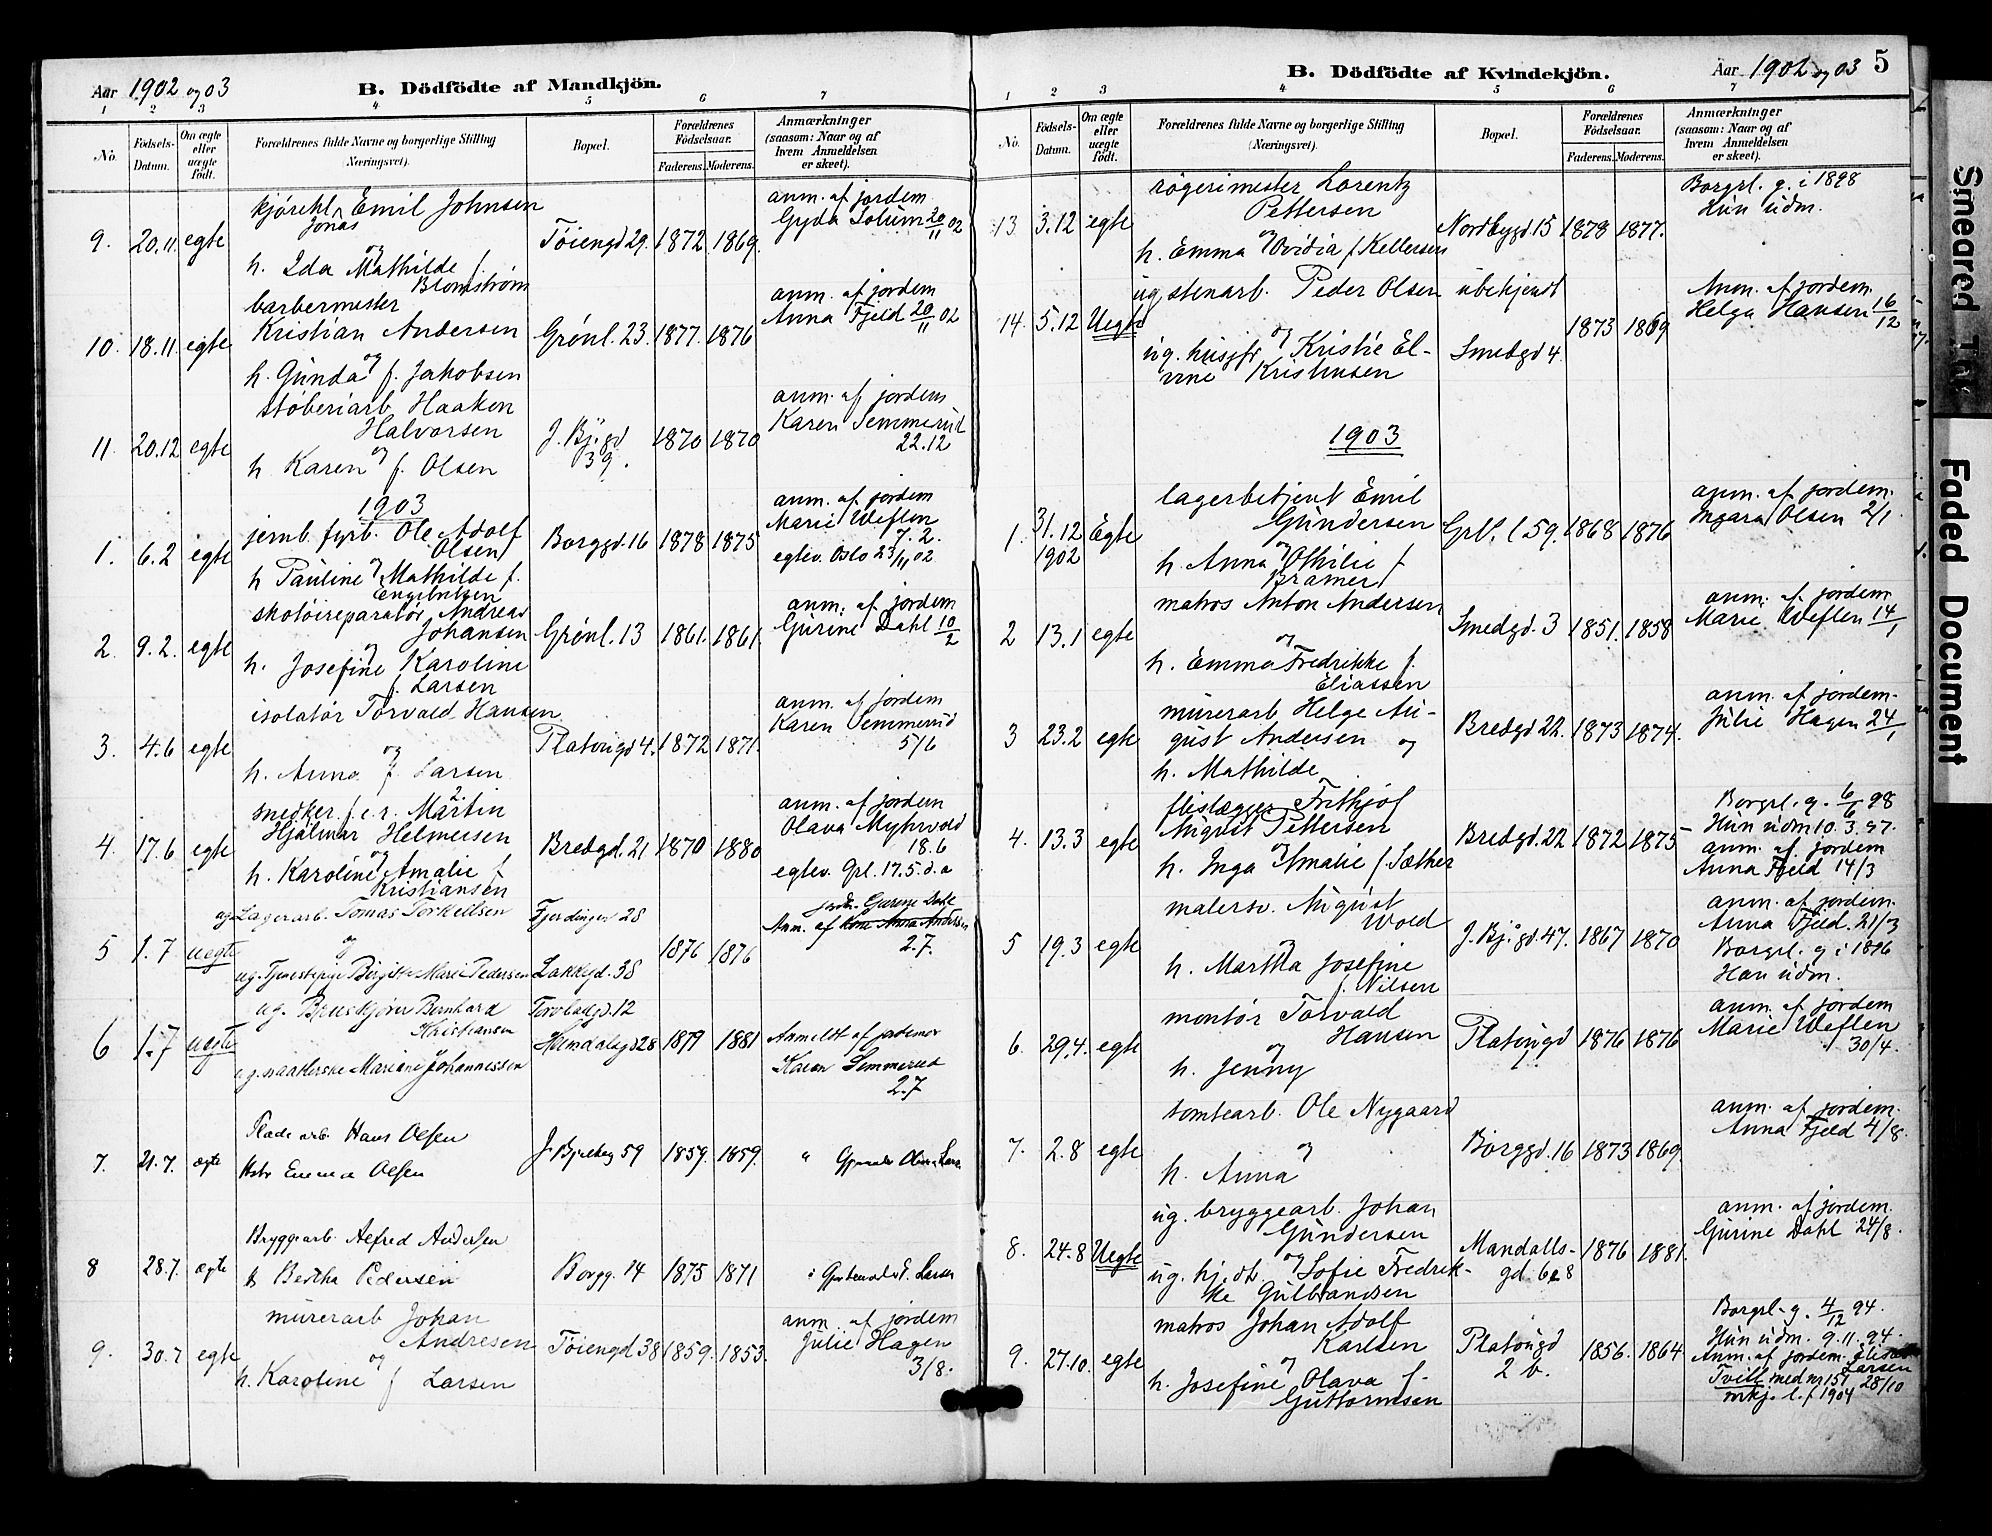 Aar 1902 og 03
B. Dödfödte af Mandkjön.
1 2 3 4 5 6 7
No.
Födsels-Datum.
Om ægte eller uægte födt.
Forældrenes fulde Navne og borgerlige Stilling (Næringsvei).
Bopæl.
Forældrenes Födselsaar.
Faderens. Moderens.
Anmærkninger (saasom: Naar og af hvem Anmeldelsen er skeet).
kjørekl. Emil Johnsen
Jonas
9. 20.11 egte
og
Töiengd 29. 1872 1869
h. Ida Mathilde f.
Blomstrøm
anm. af jordem
Gyda Solum 20/11 02
barbermester
Kristian Andersen
10. 18.11. egte
Grønl. 23. 1877. 1876
og
h. Gunda f. Jakobsen
anm. af jordem
Anna Fjeld 20/11 02
støberiarb. Haakon
Halvorsen
11. 20.12 egte
J. Bj. gd 39. 1870 1870
og
h. Karen f. Olsen
anm. af jordem
Karen Semmerud
22.12
1903
jernb. fyrb. Ole Adolf
Olsen
1. 6.2 egte
Borggd. 16 1878 1875
og
h Pauline Mathilde f.
Engebretsen
anm. af jordem
Marie Weflen
7.2.
egtev. Oslo 23/11 02
skotöireparatör Andreas
Johansen
2. 9.2. egte
Grønl. 13 1861. 1861.
og
h. Josefine Karoline
f. Larsen
anm. af jordem
Gurine Dahl 10/2
isolatør Torvald Hansen
3. 4.6 egte
Platougd 4. 1872 1871.
og
h. Anna f. Larsen
anm. af jordem
Karen Semmerud
5/6
snedker f.e.r. Martin
Hjalmar Helmersen
4. 17.6 egte
Bredgd. 21 1870 1880
og
h. Karoline Amalie f
Kristiansen
anm. af jordem
Olava Myhrvold
18.6
egtev. Grl. 17.5. d.a
ug Lagerarb. Tomas Torkellsen Fjerdingen 28
5 1.7 uegte
og
1876 1876
ug. Tjenestepige Birgitte Marie Pedersen Lakkegd. 38
jordm. Gurine Dahl
Anm. af
2.7.
ug. Bernhard Torvbadgd. 12
Kristiansen
6 1.7 uegte
Heimdalsgd 28 1879 1881
Mariane Johannessen
Anmeldt af jordemor
Karen Semmerud
2.7
Hans Olsen
7. 21.7. ægte
59 1859. 1859.
Hstr Emma Olsen
Bryggearb. Alfred Andersen
8 28.7. ægte
Borgg. 14 1875 1871
h Bertha Pedersen
murerarb Johan
Andresen
9. 30.7 egte
Töiengd 38 1859. 1853.
og
h. Karoline f Larsen
anm. af jordem
Julie Hagen
3/8.
B. Dödfödte af Kvindekjön.
Aar 1902 og 03
5
1 2 3 4 5 6 7
No.
Födsels-Datum.
Om ægte eller uægte födt.
Forældrenes fulde Navne og borgerlige Stilling (Næringsvei).
Bopæl.
Forældrenes Födselsaar.
Faderens. Moderens.
Anmærkninger (saasom: Naar og af hvem Anmeldelsen er skeet).
røgerimester Lorentz
Pettersen
13 3.12 egte
Nordbygd 15 1878 1877.
og
h. Emma Ovidia f. Kettersen
Borgrl. g. i 1898
Hun udm.
ug. stenarb. Peder Olsen ubekjendt
14. 5.12 Uegte
1873 1869
og
ug. husjfr Kristie El-
vine Kristiansen
Smedgd 4.
Anm. af jordem.
Helga Hansen 16/12
1903
lagerbetjent Emil
Gundersen
1. 31.12 1902 Egte
Grl. l 59. 1868 1876
og
h. Anna Othilie f
Bramer
anm. af jordem.
Ingara Olsen 2/1
matros Anton Andersen
2 13.1 egte
Smedgd. 3 1851. 1858
og
h. Emma Fredrikke f.
Eliassen
anm. af jordem
Marie Weflen 14/1
murerarb Helge Au-
gust Andersen og
3 23.2 egte
Bredgd 22. 1873 1874.
h. Mathilde
anm. af jordem.
Julie Hagen 24/1
fliselægger Frithjof
August Pettersen
4. 13.3 egte
Bredgd. 22 1872 1875
og
h. Inga Amalie f. Sæther
Borgrl. g. 6/6 98
Hun udm 10.3.97.
anm. af jordem
Anna Fjeld 14/3
malersv. August
Wold
5 19.3 egte
J. Bj. gd. 47. 1867 1870
og
h. Martha Josefine
f. Nilsen
anm. af jordem.
Anna Fjeld. 21/3
Borgrl. g i 1896
Han udm.
montør Torvald
Hansen
6. 29.4. egte
Platougd 1876 1876
og
h. Jenny
anm. af jordem
Marie Weflen
30/4.
tomtearb. Ole Nygaard
7. 2.8 egte
Borggd. 16 1873 1869.
og
h. Anna
anm. af jordem.
Anna Fjeld 4/8.
ug. bryggearb. Johan
Gundersen
8. 24.8 Uegte
Mandalls-
gd 6 1876 1881.
og
ug. hj. dt. Sofie Fredrik-
ke Gulbrandsen
anm. af jordem.
Gurine Dahl 24/8.
matros Johan Adolf
Karlsen
9. 27.10. egte
Platougd
2 b. 1856. 1864
og
h. Josefine Olava f.
Guttormsen
Borgrl. g. 4/12 94.
Hun udm. 9.11.94.
Anm. af jordem. Elise
Larsen
Tvill. med nr 151 28/10
mkj. l. f 1904
Smeared Ink
Faded Document